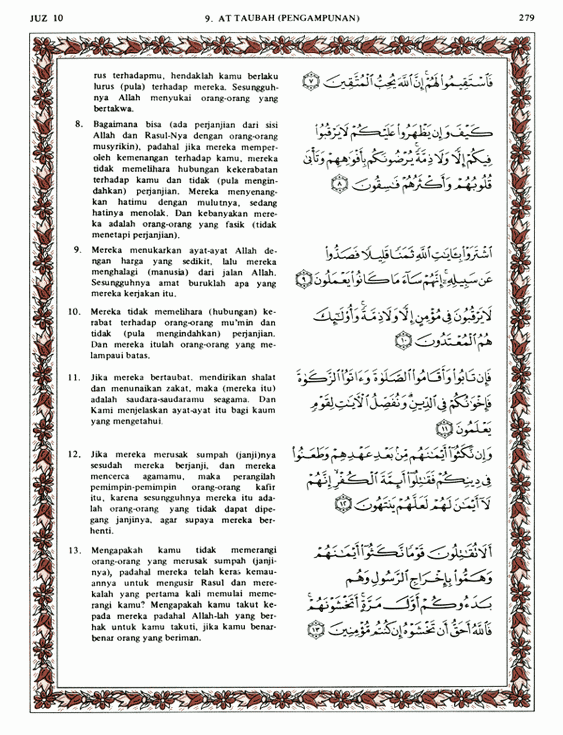 JUZ 10 9. AT TAUBAH (PENGAMPUNAN) 279
rus terhadapmu, hendaklah kamu berlaku
lurus (pula) terhadap mereka. Sesungguh-
nya Allah menyukai orang-orang yang
bertakwa.
فَٱسْتَقِيمُوا۟ لَهُمْ إِنَّ ٱللَّهَ يُحِبُّ ٱلْمُتَّقِينَ ٧
8. Bagaimana bisa (ada perjanjian dari sisi
Allah dan Rasul-Nya dengan orang-orang
musyrikin), padahal jika mereka memper-
oleh kemenangan terhadap kamu, mereka
tidak memelihara hubungan kekerabatan
terhadap kamu dan tidak (pula mengin-
dahkan) perjanjian. Mereka menyenang-
kan hatimu dengan mulutnya, sedang
hatinya menolak. Dan kebanyakan mere-
ka adalah orang-orang yang fasik (tidak
menetapi perjanjian).
كَيْفَ وَإِن يَظْهَرُوا۟ عَلَيْكُمْ لَا يَرْقُبُوا۟
فِيكُمْ إِلًّا وَلَا ذِمَّةً يُرْضُونَكُم بِأَفْوَٰهِهِمْ وَتَأْبَىٰ
قُلُوبُهُمْ وَأَكْثَرُهُمْ فَٰسِقُونَ ٨
9. Mereka menukarkan ayat-ayat Allah de-
ngan harga yang sedikit, lalu mereka
menghalagi (manusia) dari jalan Allah.
Sesungguhnya amat buruklah apa yang
mereka kerjakan itu.
ٱشْتَرَوْا۟ بِـَٔايَٰتِ ٱللَّهِ ثَمَنًا قَلِيلًا فَصَدُّوا۟
عَن سَبِيلِهِۦٓ إِنَّهُمْ سَآءَ مَا كَانُوا۟ يَعْمَلُونَ ٩
10. Mereka tidak memelihara (hubungan) ke-
rabat terhadap orang-orang mu'min dan
tidak (pula mengindahkan) perjanjian.
Dan mereka itulah orang-orang yang me-
lampaui batas.
لَا يَرْقُبُونَ فِى مُؤْمِنٍ إِلًّا وَلَا ذِمَّةً وَأُو۟لَٰٓئِكَ
هُمُ ٱلْمُعْتَدُونَ ١٠
11. Jika mereka bertaubat, mendirikan shalat
dan menunaikan zakat, maka (mereka itu)
adalah saudara-saudaramu seagama. Dan
Kami menjelaskan ayat-ayat itu bagi kaum
yang mengetahui.
فَإِن تَابُوا۟ وَأَقَامُوا۟ ٱلصَّلَوٰةَ وَءَاتَوُا۟ ٱلزَّكَوٰةَ
فَإِخْوَٰنُكُمْ فِى ٱلدِّينِ وَنُفَصِّلُ ٱلْـَٔايَٰتِ لِقَوْمٍ
يَعْلَمُونَ ١١
12. Jika mereka merusak sumpah (janji)nya
sesudah mereka berjanji, dan mereka
mencerca agamamu, maka perangilah
pemimpin-pemimpin orang-orang kafir
itu, karena sesungguhnya mereka itu ada-
lah orang-orang yang tidak dapat dipe-
gang janjinya, agar supaya mereka ber-
henti.
وَإِن نَّكَثُوٓا۟ أَيْمَٰنَهُم مِّنۢ بَعْدِ عَهْدِهِمْ وَطَعَنُوا۟
فِى دِينِكُمْ فَقَٰتِلُوٓا۟ أَئِمَّةَ ٱلْكُفْرِ إِنَّهُمْ
لَآ أَيْمَٰنَ لَهُمْ لَعَلَّهُمْ يَنتَهُونَ ١٢
13. Mengapakah kamu tidak memerangi
orang-orang yang merusak sumpah (janji-
nya), padahal mereka telah keras kemau-
annya untuk mengusir Rasul dan mere-
kalah yang pertama kali memulai meme-
rangi kamu? Mengapakah kamu takut ke-
pada mereka padahal Allah-lah yang ber-
hak untuk kamu takuti, jika kamu benar-
benar orang yang beriman.
أَلَا تُقَٰتِلُونَ قَوْمًا نَّكَثُوٓا۟ أَيْمَٰنَهُمْ
وَهَمُّوا۟ بِإِخْرَاجِ ٱلرَّسُولِ وَهُم
بَدَءُوكُمْ أَوَّلَ مَرَّةٍ أَتَخْشَوْنَهُمْ
فَٱللَّهُ أَحَقُّ أَن تَخْشَوْهُ إِن كُنتُم مُّؤْمِنِينَ ١٣